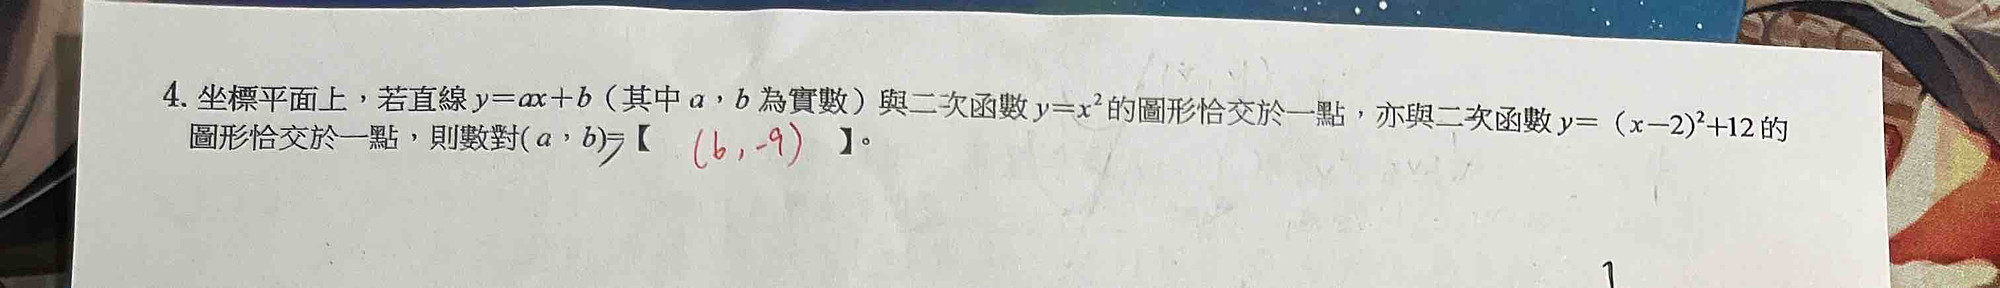 4. 坐標平面上，若直線 y=ax+b（其中 a，b 為實數）與二次函數 y=x²的圖形恰交於一點，亦與二次函數 y=（x−2)²+12 的
圖形恰交於一點，則數對(a，b)=【 (6,-9) 】。